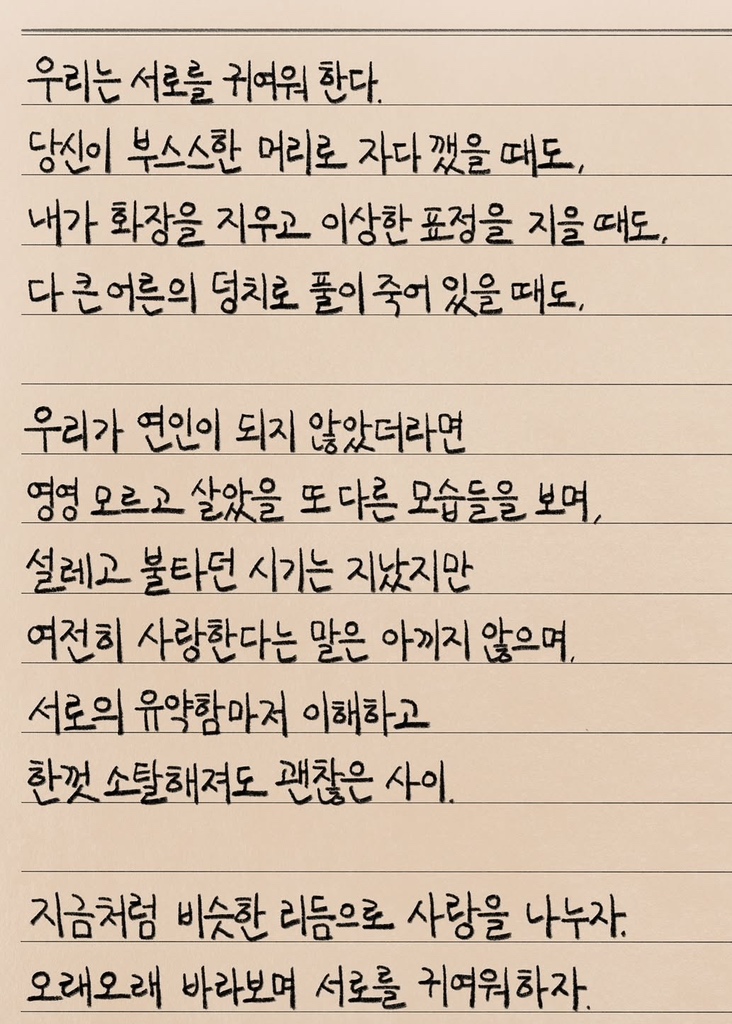 우리는 서로를 귀여워 한다.
당신이 부스스한 머리로 자다 깼을 때도,
내가 화장을 지우고 이상한 표정을 지을 때도,
다 큰 어른의 덩치로 풀이 죽어 있을 때도,
우리가 연인이 되지 않았더라면
영영 모르고 살았을 또 다른 모습들을 보며,
설레고 불타던 시기는 지났지만
여전히 사랑한다는 말은 아끼지 않으며,
서로의 유약함마저 이해하고
한껏 소탈해져도 괜찮은 사이.
지금처럼 비슷한 리듬으로 사랑을 나누자.
오래오래 바라보며 서로를 귀여워하자.